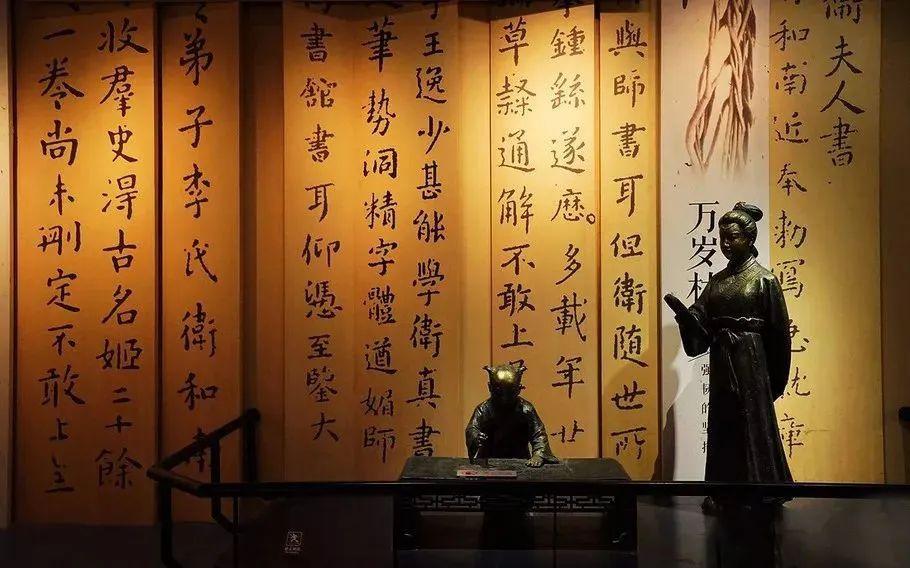 夫人書
和南近奉勅寫急就
万岁
强韧的坚
與師書耳但衛隨世所
鍾繇遂歷多載年廿
草隸通解不敢上
王逸少甚能學衛真書
筆勢洞精字體遒媚師
書館書耳仰憑至鑒大
弟子李氏衛和南
收羣史得古名姬二十餘
一卷尚未刪定不敢上